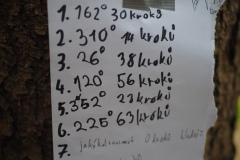 1. 162° 30 kroků
2. 310° 14 kroků
3. 26° 38 kroků
4. 120° 56 kroků
5. 352° 23 kroků
6. 225° 63 kroků
7. 0 kroků